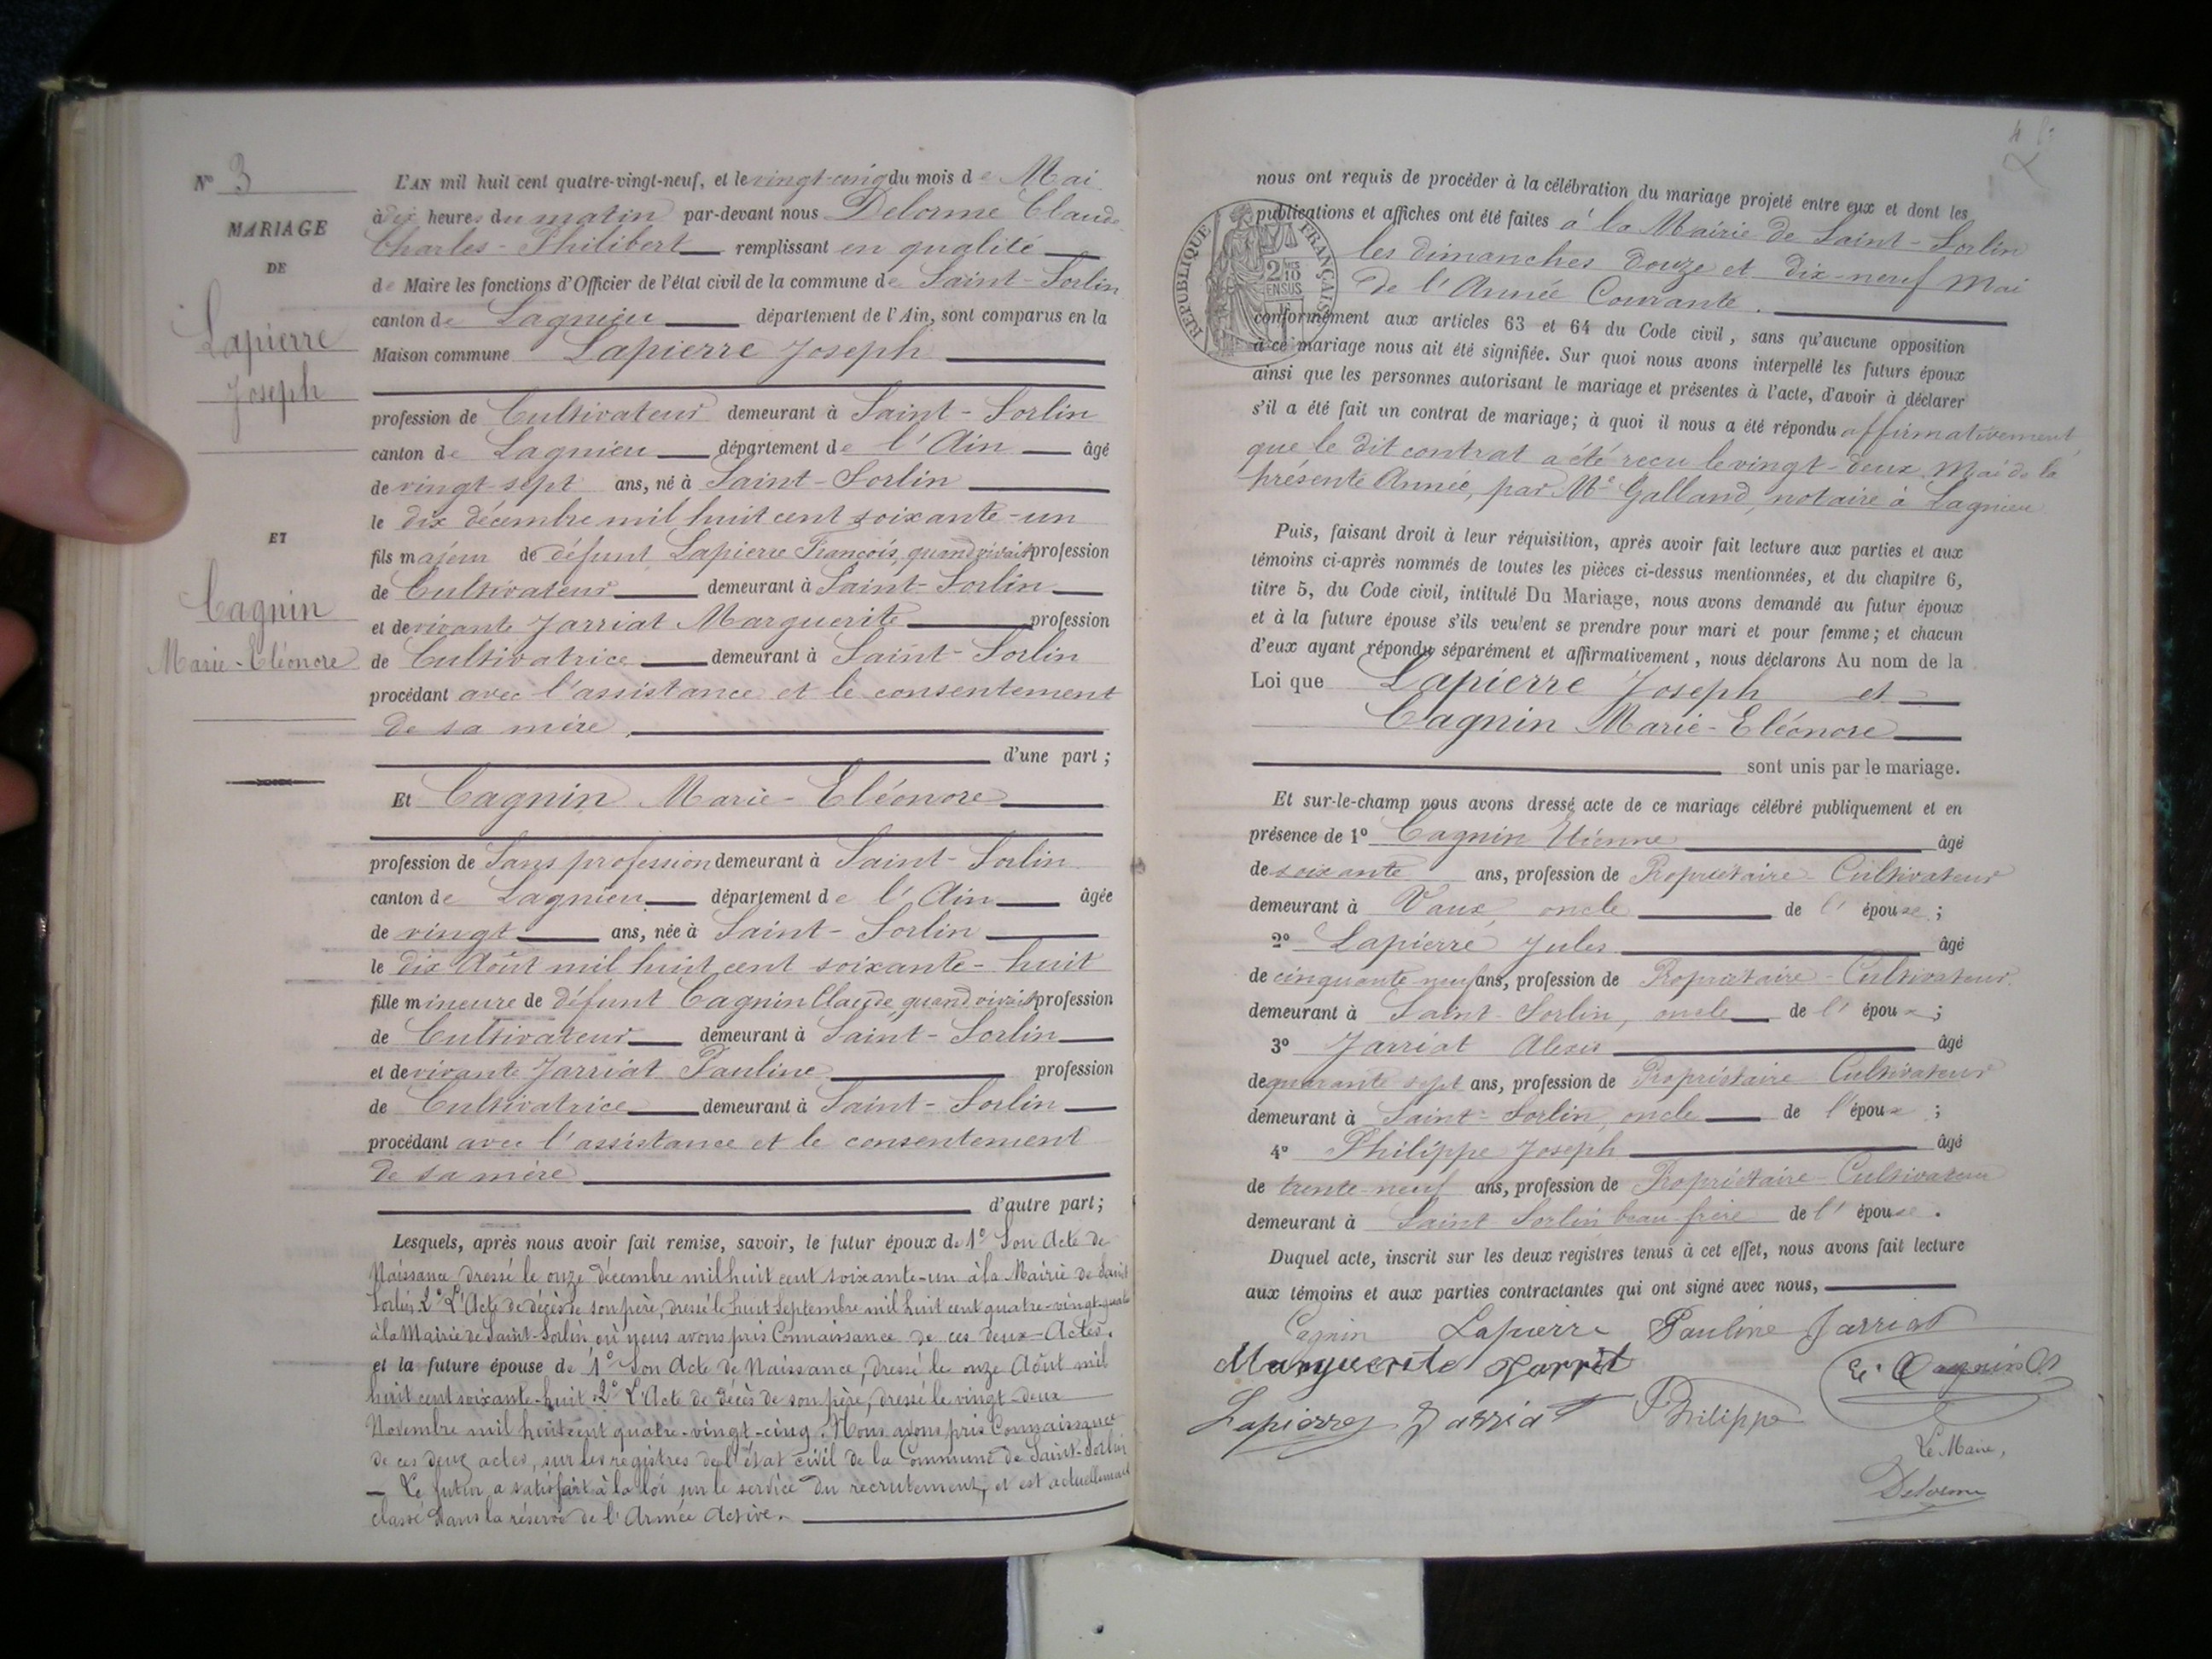 N° 3
MARIAGE
DE
Lapierre
Joseph
ET
Cagnin
Marie-Eléonore
L'AN mil huit cent quatre-vingt-neuf, et le vingt-cinq du mois de Mai
à dix heures du matin par-devant nous Delorme Claude
Charles-Philibert remplissant en qualité
de Maire les fonctions d'Officier de l'état civil de la commune de Saint-Sorlin
canton de Lagnieu département de l'Ain, sont comparus en la
Maison commune Lapierre Joseph
profession de Cultivateur demeurant à Saint-Sorlin
canton de Lagnieu département de l'Ain âgé
de vingt-sept ans, né à Saint-Sorlin
le dix décembre mil huit cent soixante-un
fils majeur de défunt Lapierre François, quand vivait profession
de Cultivateur demeurant à Saint-Sorlin
et de vivante Jarriat Marguerite profession
de Cultivatrice demeurant à Saint-Sorlin
procédant avec l'assistance et le consentement
de sa mère,
d'une part ;
Et Cagnin Marie-Eléonore
profession de Sans profession demeurant à Saint-Sorlin
canton de Lagnieu département de l'Ain âgée
de vingt ans, née à Saint-Sorlin
le dix Août mil huit cent soixante-huit
fille mineure de défunt Cagnin Claude, quand vivait profession
de Cultivateur demeurant à Saint-Sorlin
et de vivante Jarriat Pauline profession
de Cultivatrice demeurant à Saint-Sorlin
procédant avec l'assistance et le consentement
de sa mère
d'autre part ;
Lesquels, après nous avoir fait remise, savoir, le futur époux de 1° Son Acte de
Naissance dressé le onze décembre mil huit cent soixante-un à la Mairie de Saint
Sorlin, 2° L'Acte de décès de son père, dressé le huit Septembre mil huit cent quatre-vingt-quatre
à la Mairie de Saint-Sorlin où nous avons pris Connaissance de ces deux-Actes.
et la future épouse de 1° Son Acte de Naissance, dressé le onze Août mil
huit cent soixante-huit. 2° L'Acte de décès de son père, dressé le vingt-deux
Novembre mil huit cent quatre-vingt-cinq. Nous avons pris Connaissance
de ces deux actes, sur les registres de l'état civil de la Commune de Saint-Sorlin
- Le futur a satisfait à la loi sur le service du recrutement, et est actuellement
classé dans la réserve de l'Armée Active.
nous ont requis de procéder à la célébration du mariage projeté entre eux et dont les
publications et affiches ont été faites à la Mairie de Saint-Sorlin
les dimanches douze et dix-neuf Mai
de l'Année Courante.
RÉPUBLIQUE FRANÇAISE
conformément aux articles 63 et 64 du Code civil, sans qu'aucune opposition
à ce mariage nous ait été signifiée. Sur quoi nous avons interpellé les futurs époux
ainsi que les personnes autorisant le mariage et présentes à l'acte, d'avoir à déclarer
s'il a été fait un contrat de mariage; à quoi il nous a été répondu affirmativement
que le dit contrat a été reçu le vingt-deux Mai de la
présente Année, par Me Galland, notaire à Lagnieu
Puis, faisant droit à leur réquisition, après avoir fait lecture aux parties et aux
témoins ci-après nommés de toutes les pièces ci-dessus mentionnées, et du chapitre 6,
titre 5, du Code civil, intitulé Du Mariage, nous avons demandé au futur époux
et à la future épouse s'ils veulent se prendre pour mari et pour femme; et chacun
d'eux ayant répondu séparément et affirmativement, nous déclarons Au nom de la
Loi que Lapierre Joseph et
Cagnin Marie-Eléonore
sont unis par le mariage.
Et sur-le-champ nous avons dressé acte de ce mariage célébré publiquement et en
présence de 1° Cagnin Etienne âgé
de soixante ans, profession de Propriétaire-Cultivateur
demeurant à Vaux, oncle de l'épouse ;
2° Lapierre Jules âgé
de cinquante neuf ans, profession de Propriétaire-Cultivateur
demeurant à Saint-Sorlin, oncle de l'époux ;
3° Jarriat Alexis âgé
de quarante sept ans, profession de Propriétaire Cultivateur
demeurant à Saint-Sorlin, oncle de l'époux ;
4° Philippe Joseph âgé
de trente-neuf ans, profession de Propriétaire-Cultivateur
demeurant à Saint-Sorlin beau-frère de l'épouse.
Duquel acte, inscrit sur les deux registres tenus à cet effet, nous avons fait lecture
aux témoins et aux parties contractantes qui ont signé avec nous,
Cagnin Lapierre Pauline Jarriat
Marguerite Jarrit Cagnin
Lapierre Jarriat Philippe
Le Maire,
Delorme